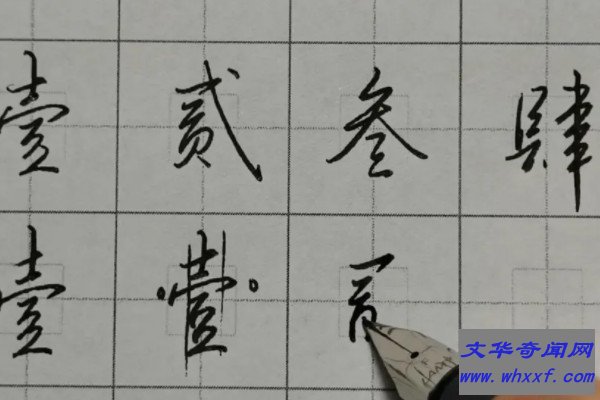 壹 贰 叁 肆
壹 壹
文华奇闻网
www.whxxf.com